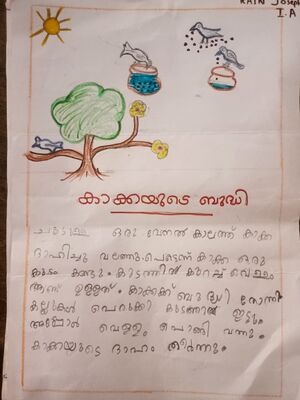 RAIN Joseph
I.A
കാക്കയുടെ ബുദ്ധി
ഒരു വേനൽ കാലത്ത് കാക്ക
ദാഹിച്ചു വലഞ്ഞു. പെട്ടെന്ന് കാക്ക ഒരു
കുടം കണ്ടു. കുടത്തിൽ കുറച്ച് വെള്ളം
ആണ് ഉള്ളത്. കാക്കക്ക് ബുദ്ധി തോന്നി
കല്ലുകൾ പെറുക്കി കുടത്തിൽ ഇട്ടു.
അപ്പോൾ വെള്ളം പൊങ്ങി വന്നു.
കാക്കയുടെ ദാഹം തീർന്നു.